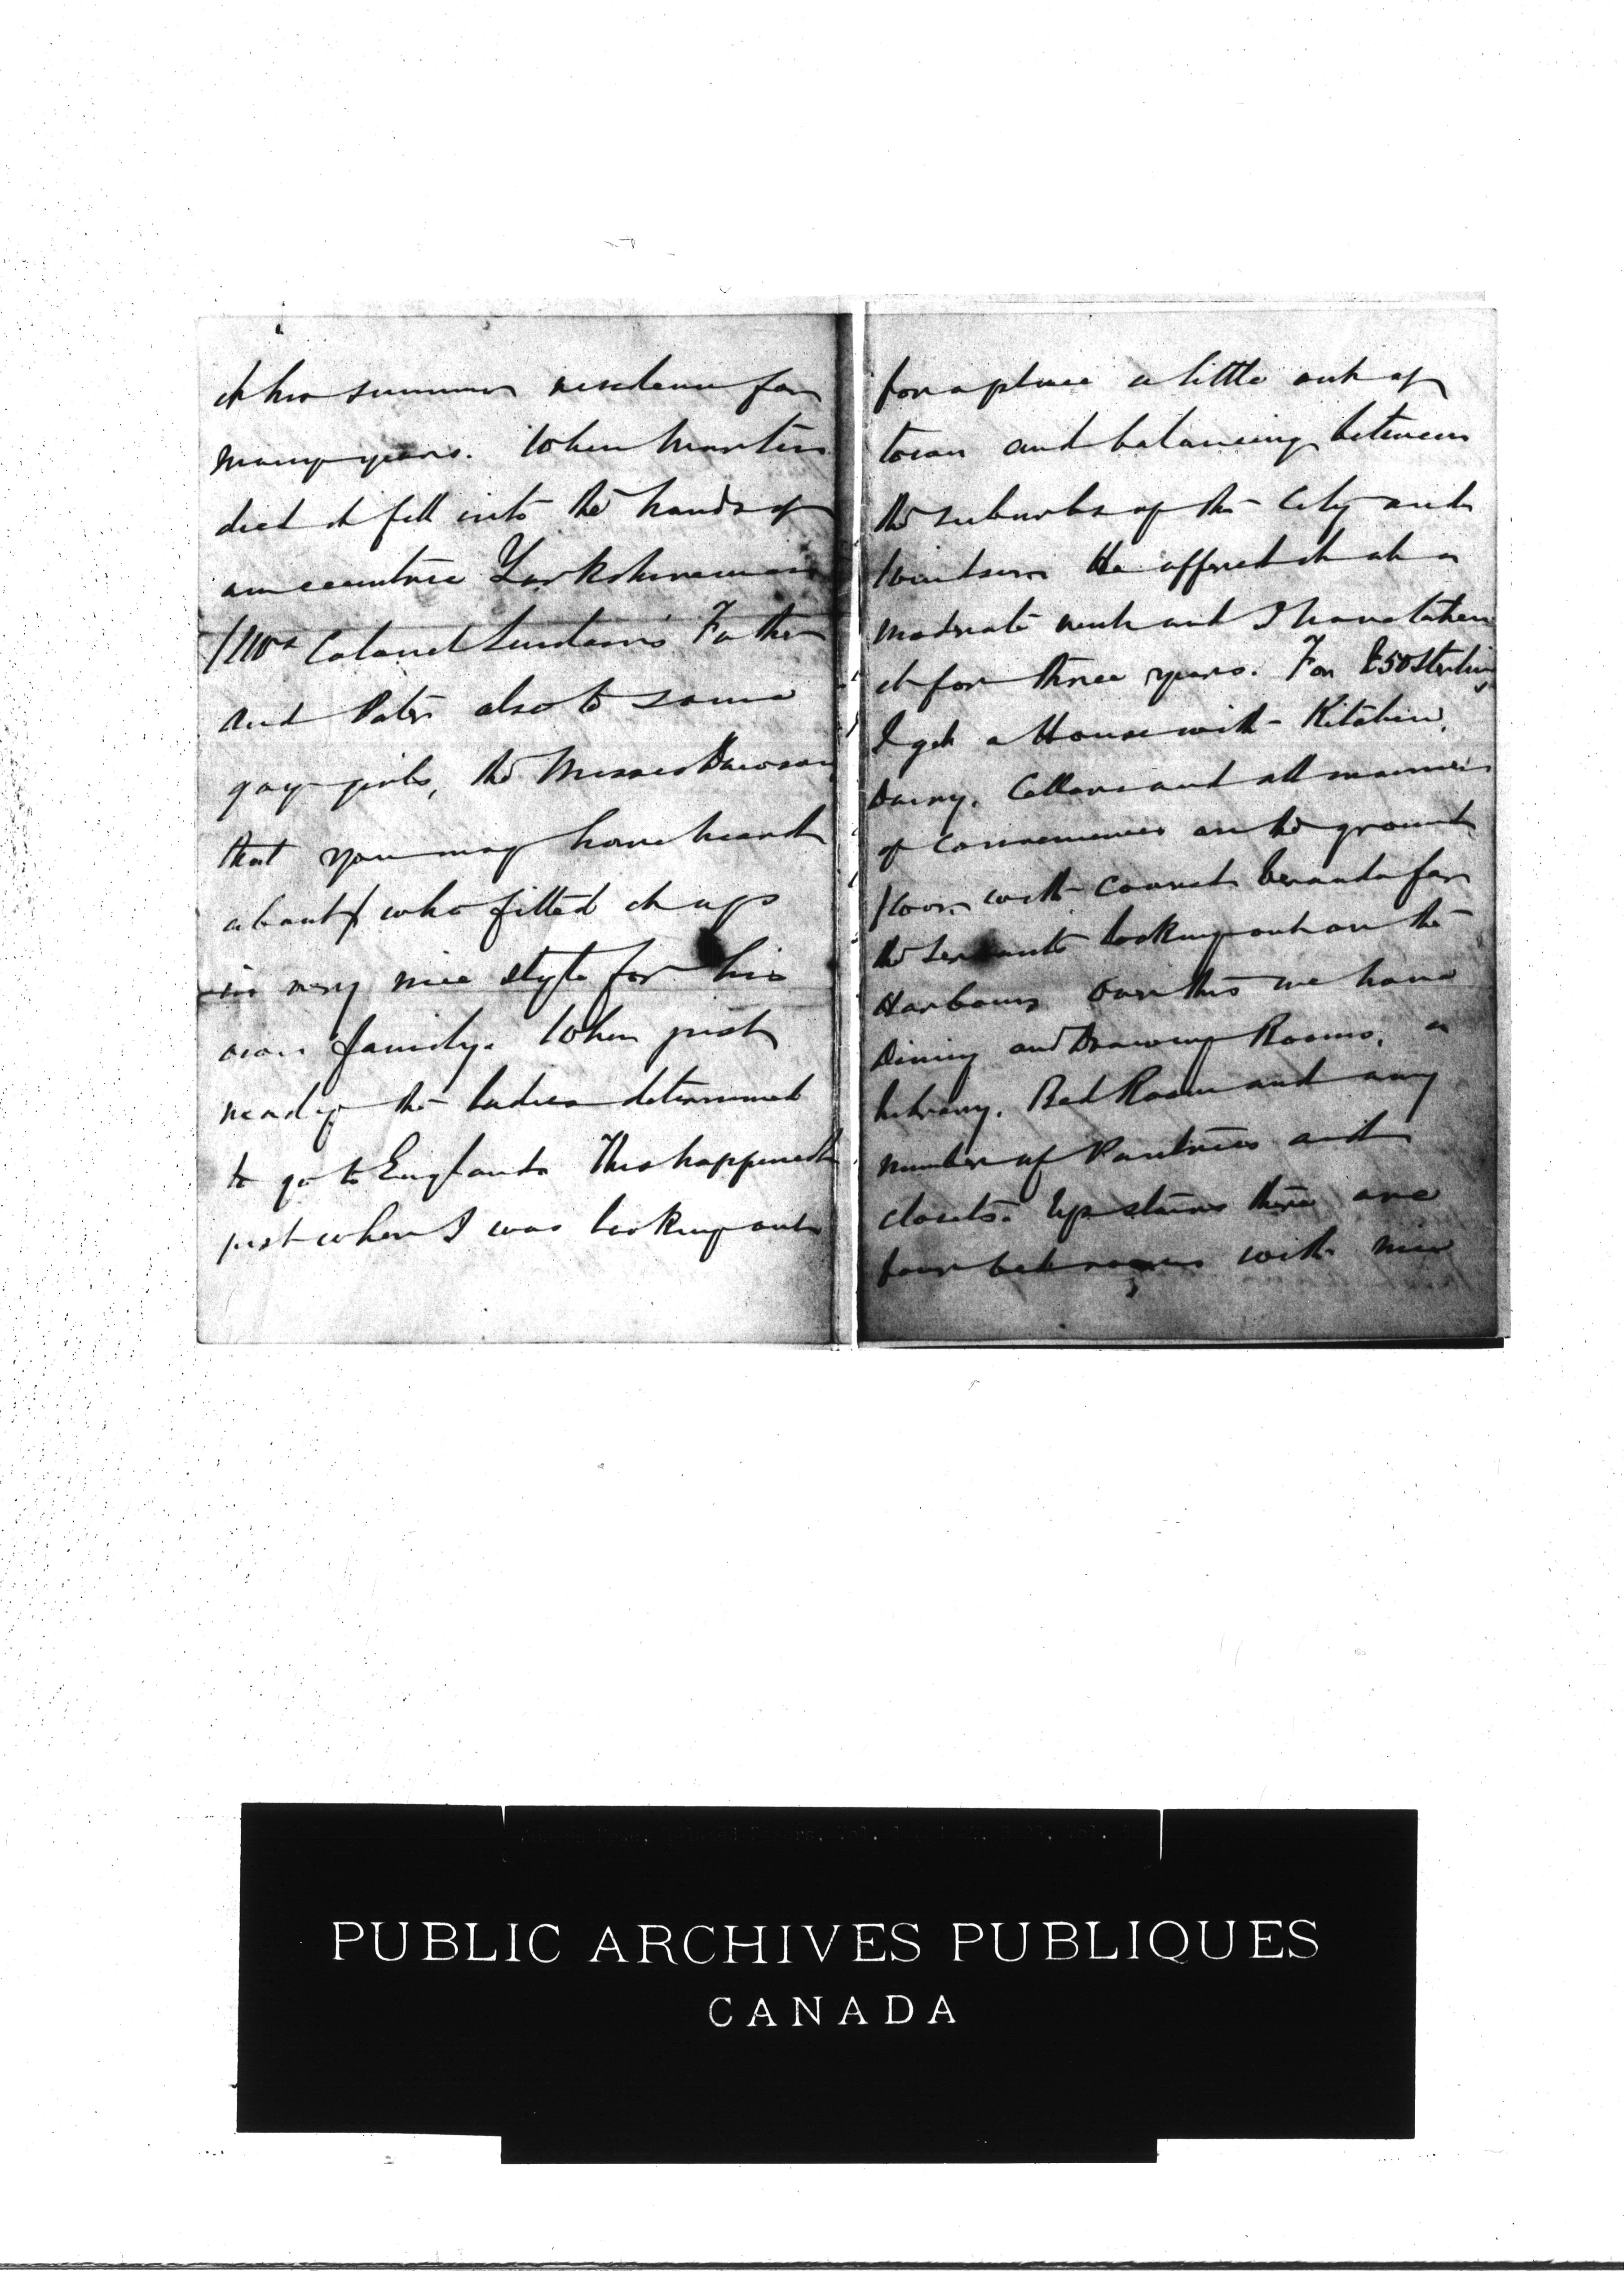 it his summer residence for
many years. When Martin
died it fell into the hands of
an eccentric Yorkshireman
(Mrs Colonel Father
and Pater also to some
gay girls, the Misses Dawson
that you may have heard
about) who fitted it up
in very nice style for his
own family. When just
ready the ladies determined
to go to England. This happened
just when I was looking out
for a place a little out of
town and balancing between
the suburbs of the City and
Windsor. He offered it at a
moderate rent and I have taken
it for three years. For £50 Sterling
I get a House with Kitchen,
Dairy, Cellars and all manner
of conveniences on the ground
floor with covered veranda for
the servants looking out on the
Harbour. Over this we have
Dining and Drawing Rooms, a
Library, Bed Room and any
number of Pantries and
closets. Up stairs there are
four bed rooms with nice
PUBLIC ARCHIVES PUBLIQUES
CANADA